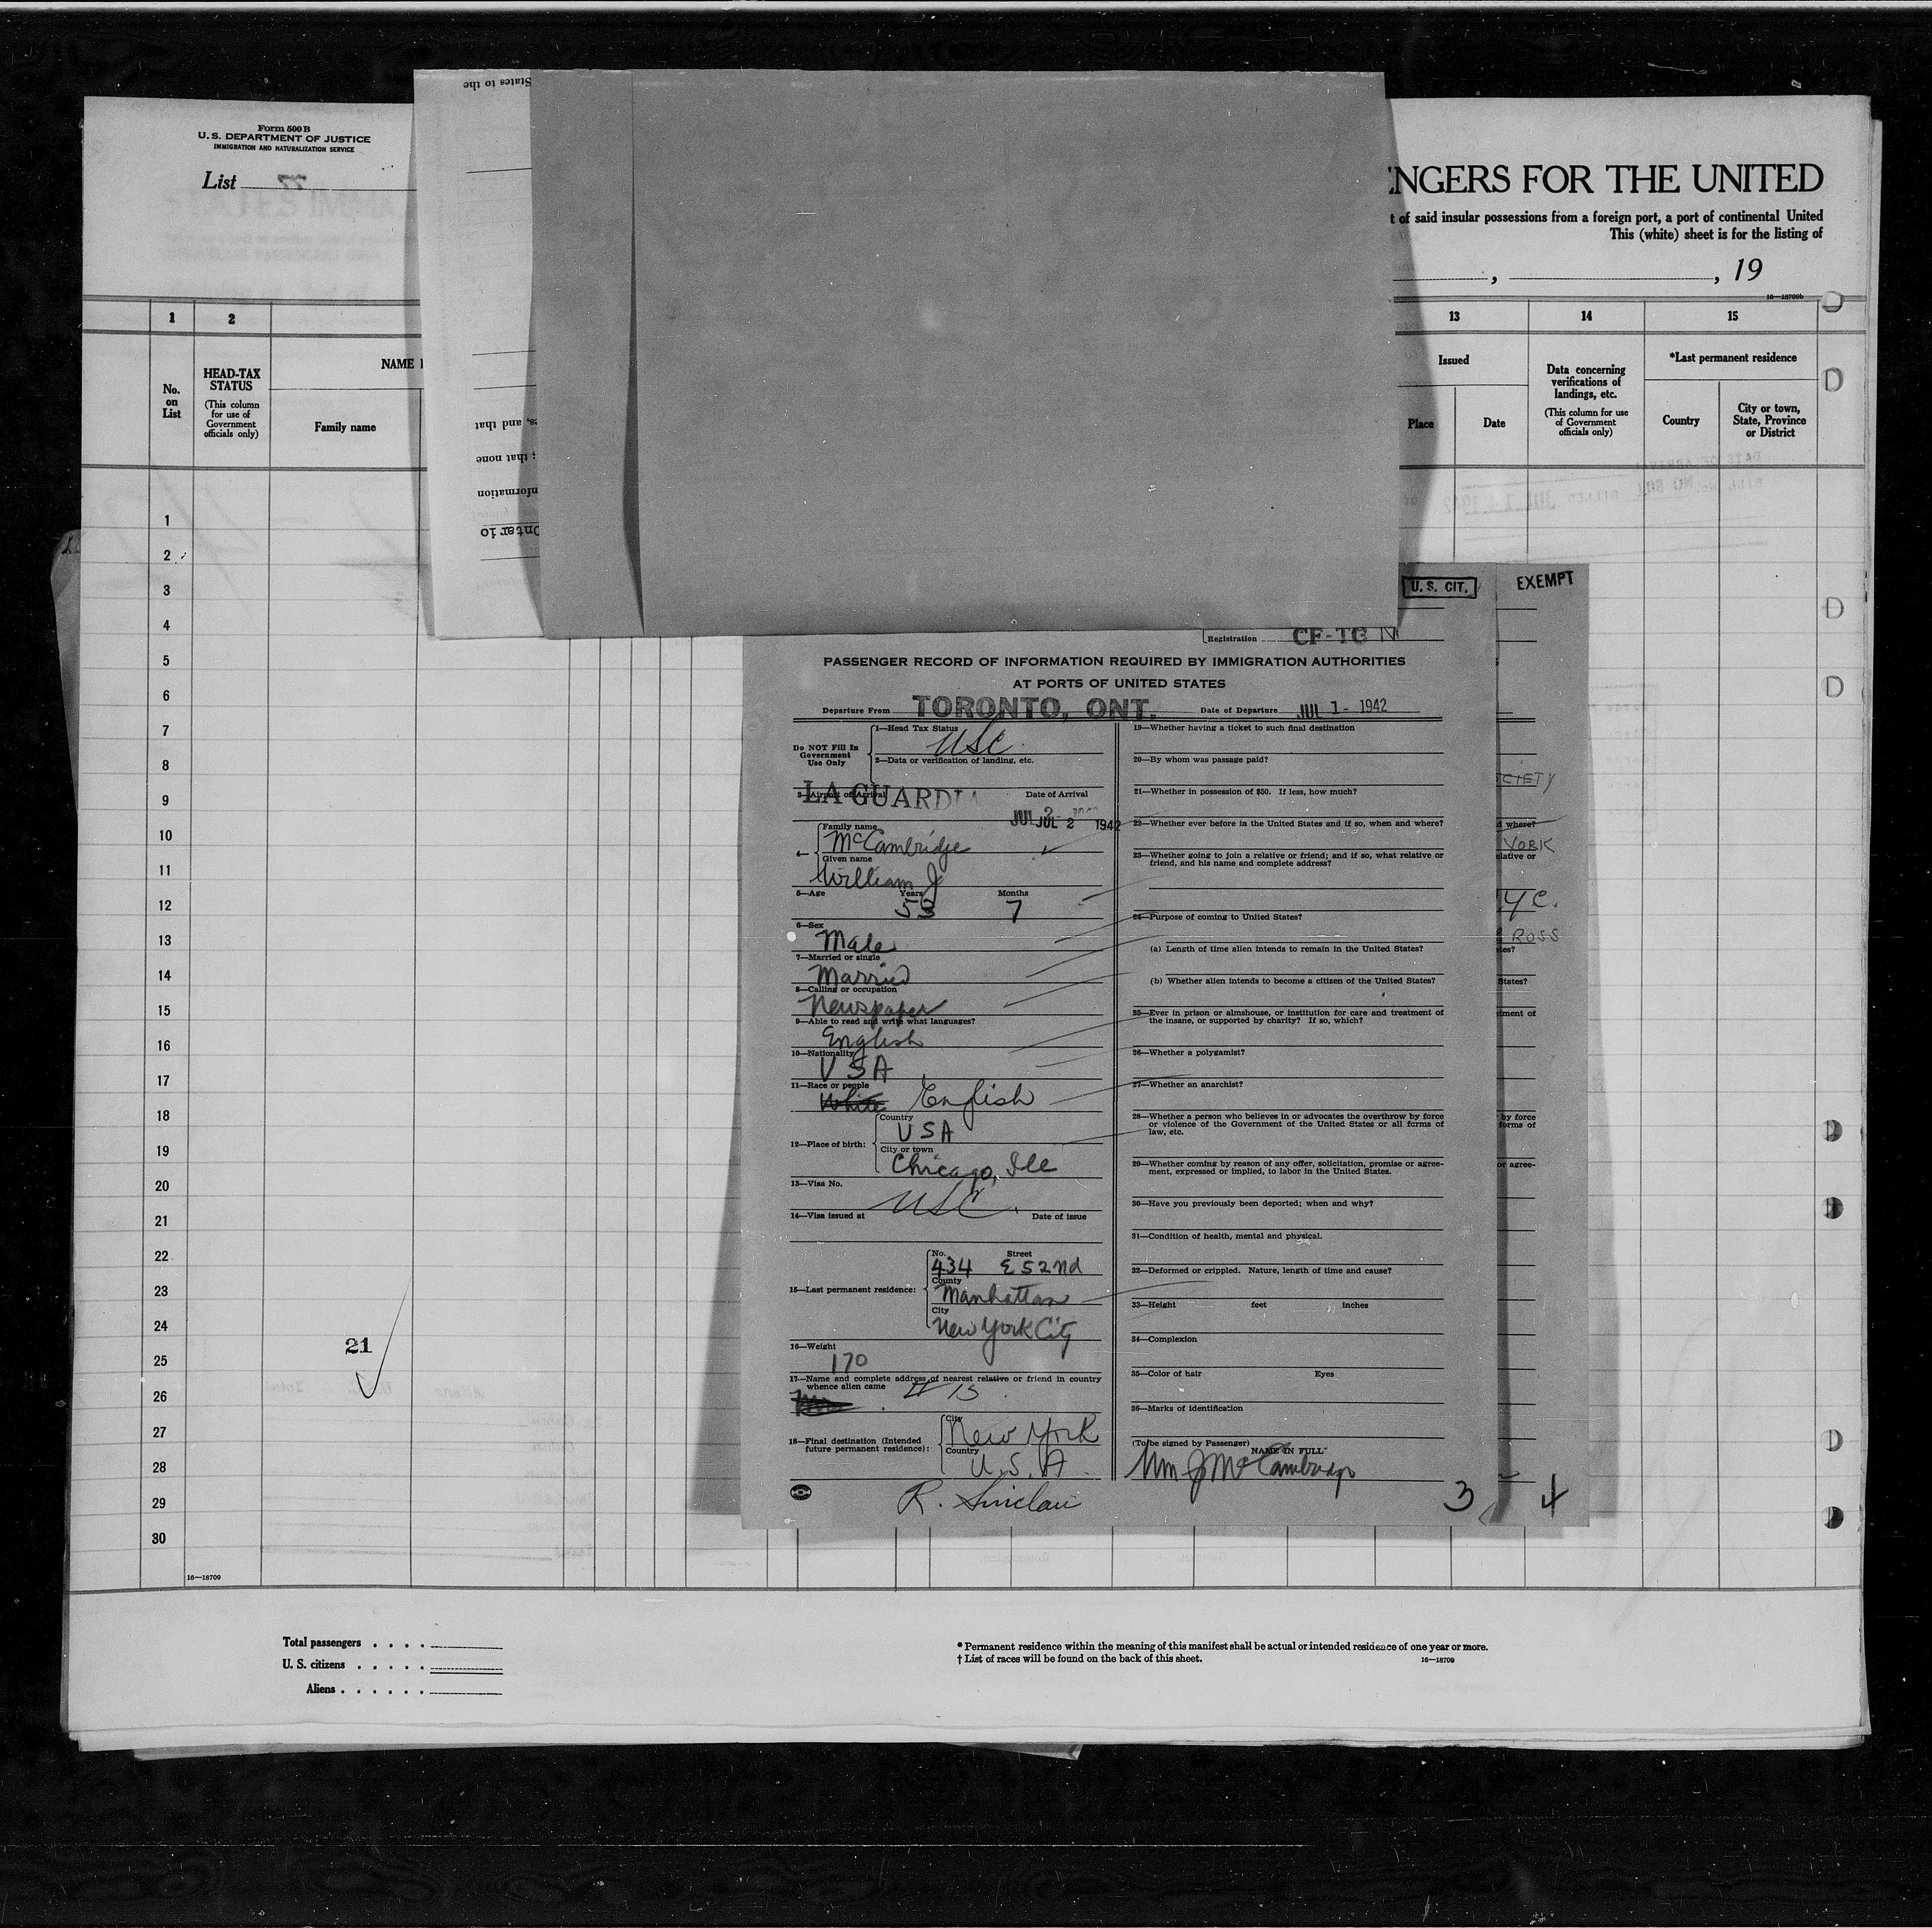 States to the
Form 500 B
U. S. DEPARTMENT OF JUSTICE
IMMIGRATION AND NATURALIZATION SERVICE
List
ENGERS FOR THE UNITED
t of said insular possessions from a foreign port, a port of continental United
This (white) sheet is for the listing of
, , 19
16—18709b
1 2 13 14 15
No. on List
HEAD-TAX STATUS
(This column for use of Government officials only)
NAME
Family name
Issued
Place Date
Data concerning verifications of landings, etc.
(This column for use of Government officials only)
*Last permanent residence
Country
City or town, State, Province or District
es, and that
; that none
nformation
Ontario
1
2
3
4
5
6
7
8
9
10
11
12
13
14
15
16
17
18
19
20
21
22
23
24
25
26
27
28
29
30
21
16—18709
U. S. CIT.
EXEMPT
Registration CF-TC
PASSENGER RECORD OF INFORMATION REQUIRED BY IMMIGRATION AUTHORITIES
AT PORTS OF UNITED STATES
Departure From TORONTO, ONT. Date of Departure JUL 1 - 1942
Do NOT Fill In Government Use Only
1—Head Tax Status
USC
2—Data or verification of landing, etc.
3—Airport of Arrival Date of Arrival
LA GUARDIA
JUL 2 1942
Family name
McCambridge
Given name
William J
5—Age Years Months
7
6—Sex
Male
7—Married or single
Married
8—Calling or occupation
Newspaper
9—Able to read and write what languages?
English
10—Nationality
USA
11—Race or people
White English
12—Place of birth:
Country
USA
City or town
Chicago, Ill
13—Visa No.
USC.
14—Visa issued at Date of issue
15—Last permanent residence:
No. Street
434 E 52nd
County
Manhattan
City
New York City
16—Weight
170
17—Name and complete address of nearest relative or friend in country
whence alien came
# 15
18—Final destination (Intended
future permanent residence):
City
New York
Country
U.S.A.
R. Sinclair
19—Whether having a ticket to such final destination
20—By whom was passage paid?
21—Whether in possession of $50. If less, how much?
22—Whether ever before in the United States and if so, when and where?
23—Whether going to join a relative or friend; and if so, what relative or
friend, and his name and complete address?
24—Purpose of coming to United States?
(a) Length of time alien intends to remain in the United States?
(b) Whether alien intends to become a citizen of the United States?
25—Ever in prison or almshouse, or institution for care and treatment of
the insane, or supported by charity? If so, which?
26—Whether a polygamist?
27—Whether an anarchist?
28—Whether a person who believes in or advocates the overthrow by force
or violence of the Government of the United States or all forms of
law, etc.
29—Whether coming by reason of any offer, solicitation, promise or agree-
ment, expressed or implied, to labor in the United States.
30—Have you previously been deported; when and why?
31—Condition of health, mental and physical.
32—Deformed or crippled. Nature, length of time and cause?
33—Height feet inches
34—Complexion
35—Color of hair Eyes
36—Marks of identification
(To be signed by Passenger) NAME IN FULL
Wm J McCambridge
3
CIETY
d where?
YORK
elative or
YC.
ROSS
tes?
States?
tment of
by force
forms of
or agree-
4
Total passengers . . . .
U. S. citizens . . . . .
Aliens . . . . . .
* Permanent residence within the meaning of this manifest shall be actual or intended residence of one year or more.
† List of races will be found on the back of this sheet. 16—18709